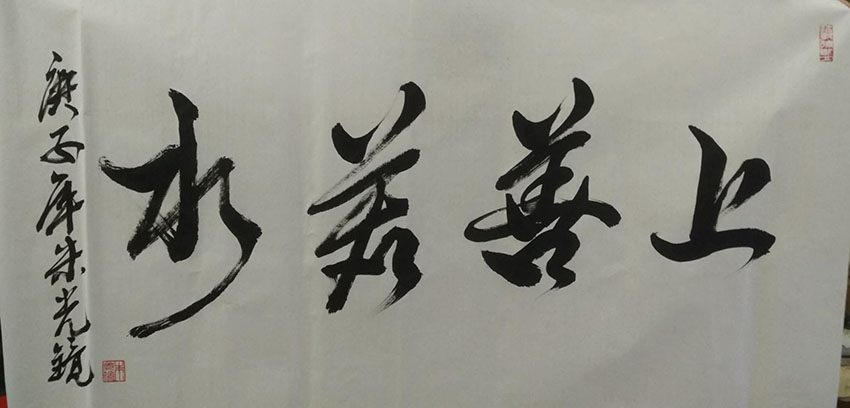 上善若水
庚子年朱光镜